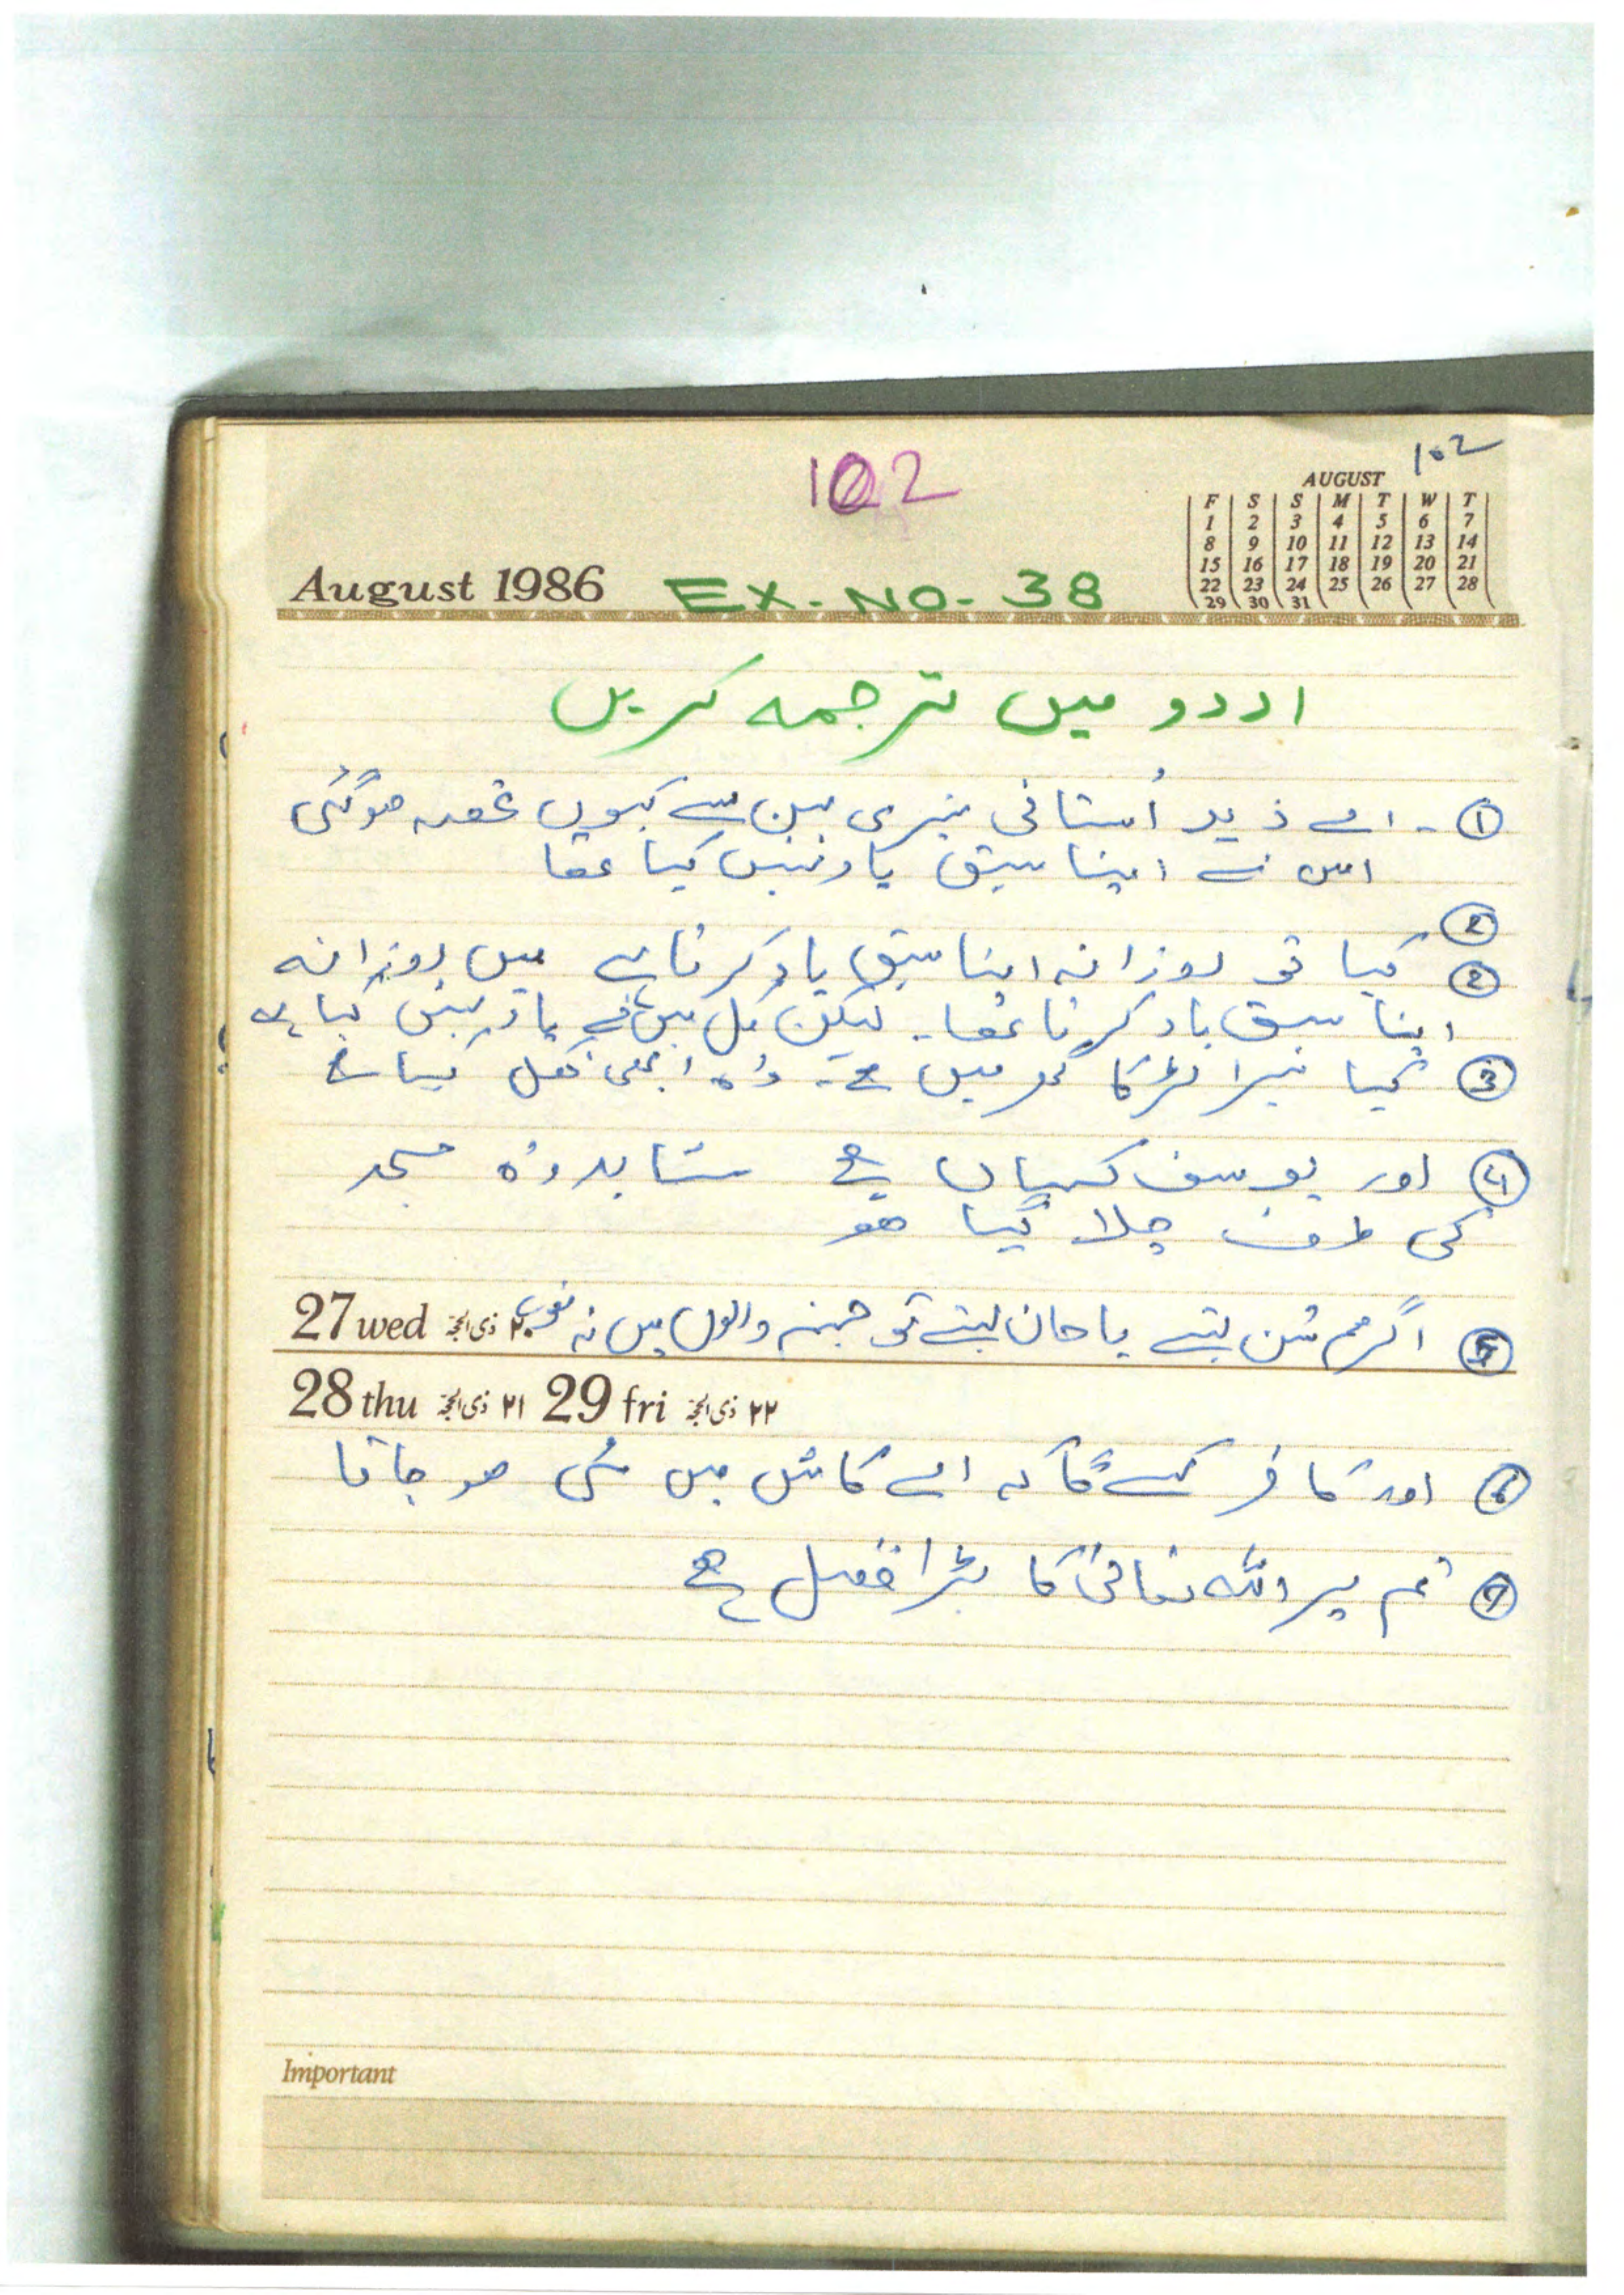 102
102
AUGUST
F S S M T W T
1 2 3 4 5 6 7
8 9 10 11 12 13 14
15 16 17 18 19 20 21
22 23 24 25 26 27 28
29 30 31
August 1986 EX-NO-38
اردو میں ترجمہ کریں
① - اے زید اُستانی تیری بہن سے کیوں غصہ ہوگئی
اس نے اپنا سبق یاد نہیں کیا تھا
②
② کیا تو روزانہ اپنا سبق یاد کرتا ہے میں روزانہ
اپنا سبق یاد کرتا تھا۔ لیکن کل میں نے یاد نہیں کیا ہے
③ کیا تیرا لڑکا گھر میں ہے۔ وُہ ابھی نکل گیا ہے
④ اور یوسف کہاں ہے شاید وُہ مسجد
کی طرف چلا گیا ہو
⑤ اگر ہم سُن لیتے یا جان لیتے تو جہنم والوں میں نہ ہوتے
27 wed ۲۰ ذی الحجہ
28 thu ۲۱ ذی الحجہ 29 fri ۲۲ ذی الحجہ
⑥ اور کافر کہے گا کہ اے کاش میں مٹی ہو جاتا
⑦ تم پر اللہ تعالیٰ کا بڑا فضل ہے
Important